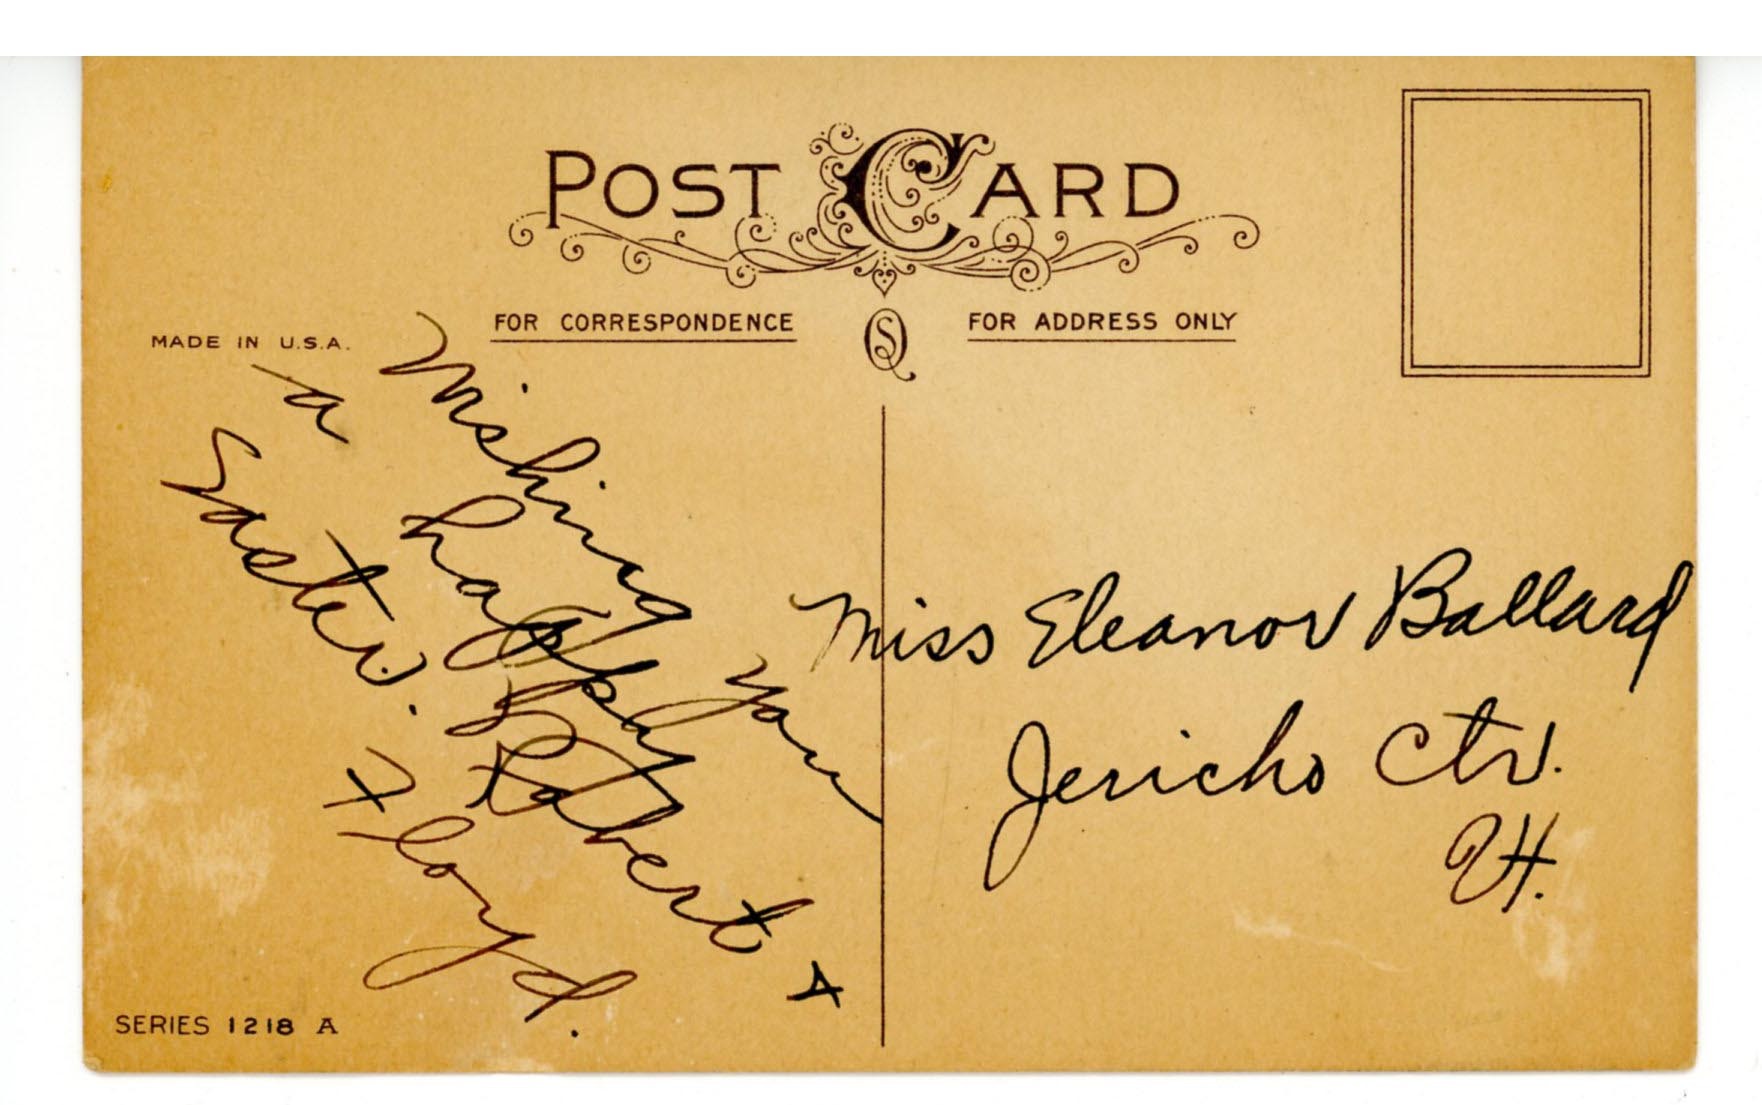 POST CARD
FOR CORRESPONDENCE
FOR ADDRESS ONLY
MADE IN U.S.A.
Wishing you
a happy
Easter.
Robert +
Floyd.
Miss Eleanor Ballard
Jericho Ctr.
Vt.
SERIES 1218 A